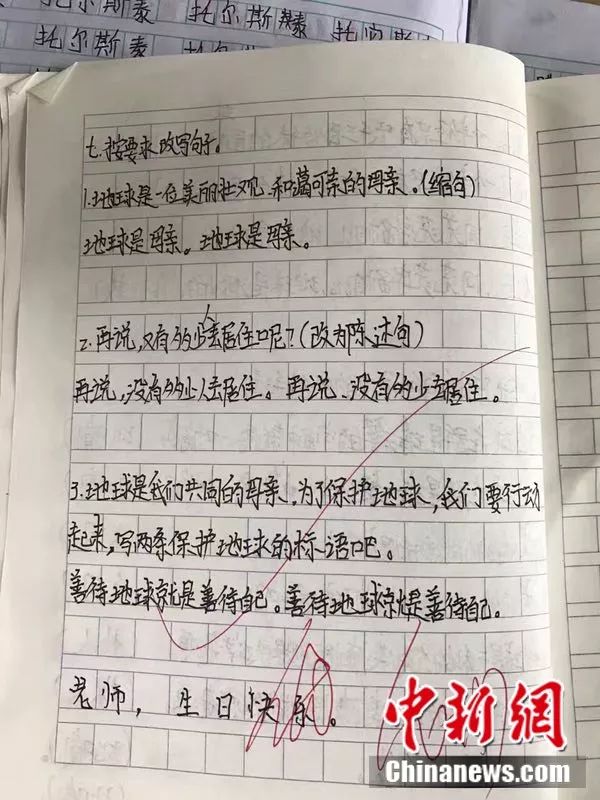 托尔斯泰
托尔斯泰 托尔斯泰
七.按要求改写句子。
1.地球是一位美丽壮观,和蔼可亲的母亲.(缩句)
地球是母亲。地球是母亲。
2.再说,又有多少人去居住呢?(改为陈述句)
再说,没有多少人去居住。再说、没有多少去居住。
3.地球是我们共同的母亲,为了保护地球,我们要行动
起来,写两条保护地球的标语吧。
善待地球就是善待自己。善待地球就是善待自己。
老师,生日快乐。
中新网
Chinanews.com